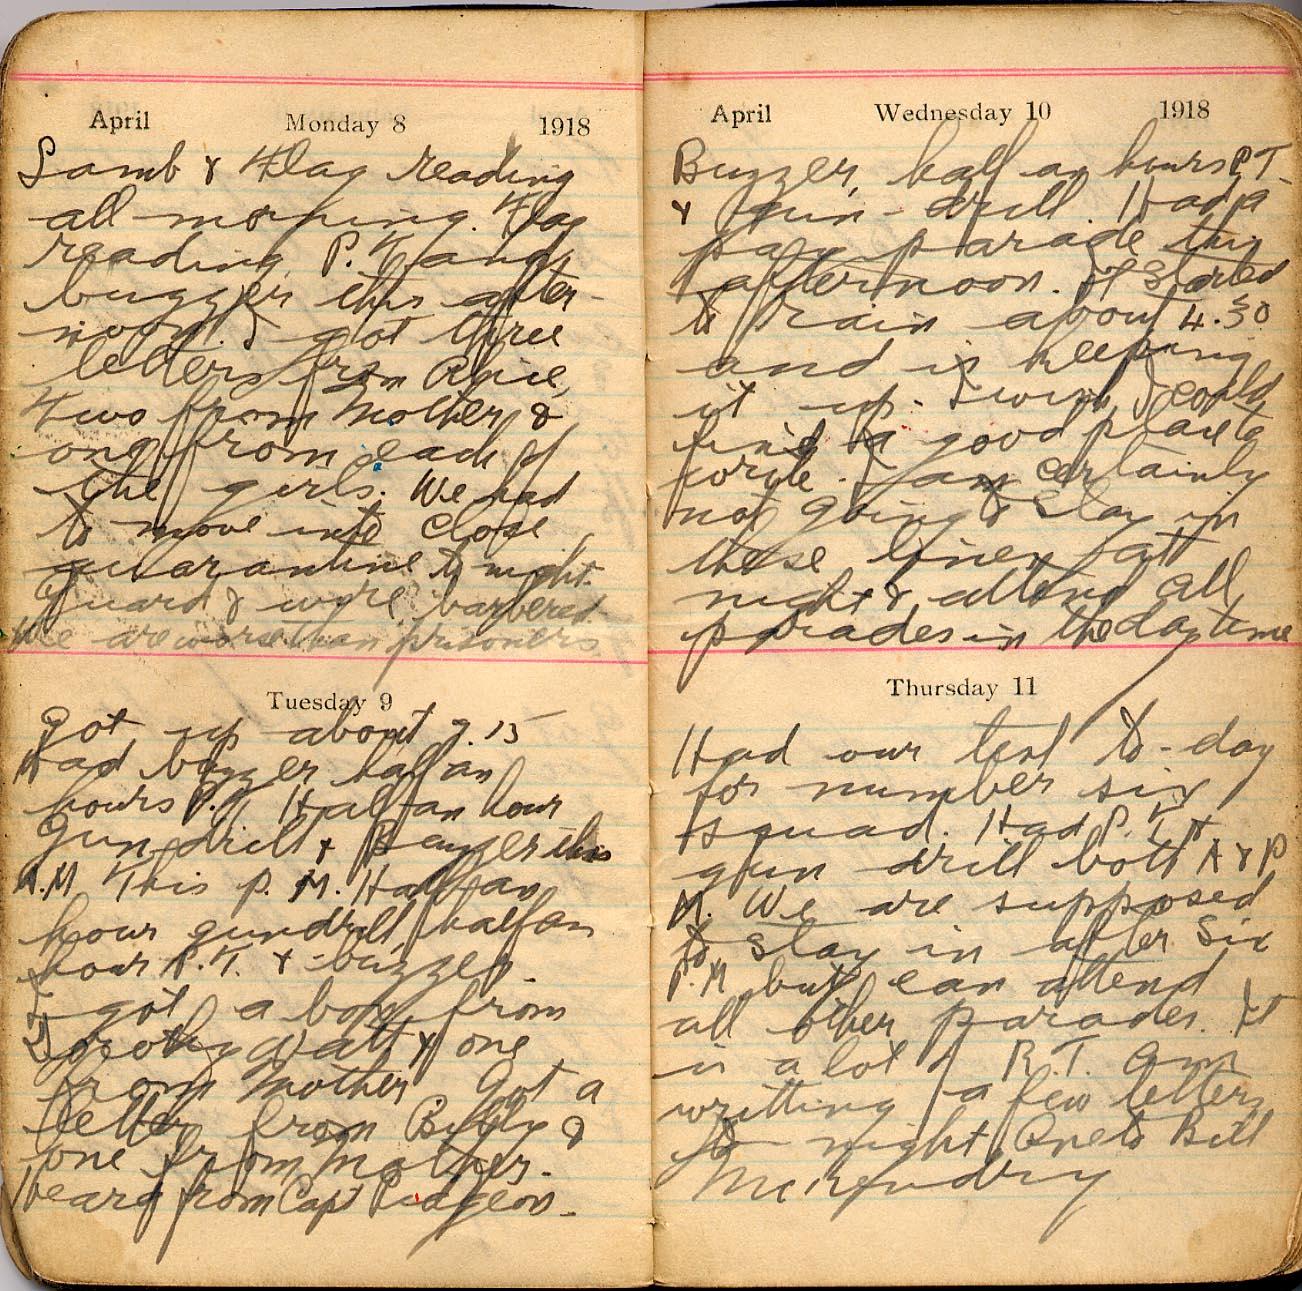 April Monday 8 1918
Lamb & Flag reading
all morning. Flag
reading, P.T. and
buzzer this after-
noon. I got three
letters from
Two from Mother &
one from each of
the girls. We had
to move into close
quarantine to night.
Guard & wire barbered
We are worse than prisoners
Tuesday 9
Got up about 7.15
Had buzzer half an
hours P.T. Half an hour
Gun drill & Buzzer this
A.M. This P.M. Half an
hour gundrill, half an
hour P.T. & buzzer.
I got a box from
Dorothy Watt & one
from Mother. Got a
letter from Billy &
one from Mother.
Heard from Capt Pidgeon.
April Wednesday 10 1918
Buzzer, half an hours P.T.
& gun-drill. Had a
pay parade this
afternoon. It started
to rain about 4.30
and is keeping
it up. I wish I could
find a good place to
write. I am certainly
not going to stay in
these lines at
night & attend all
parades in the daytime
Thursday 11
Had our test to-day
for number six
squad. Had P.T. &
gun drill both A & P
M. We are supposed
to stay in after Six
P.M but can attend
all other parades. It
is a lot of R.T. Am
writting a few letters
to night One to Bill
McKendry